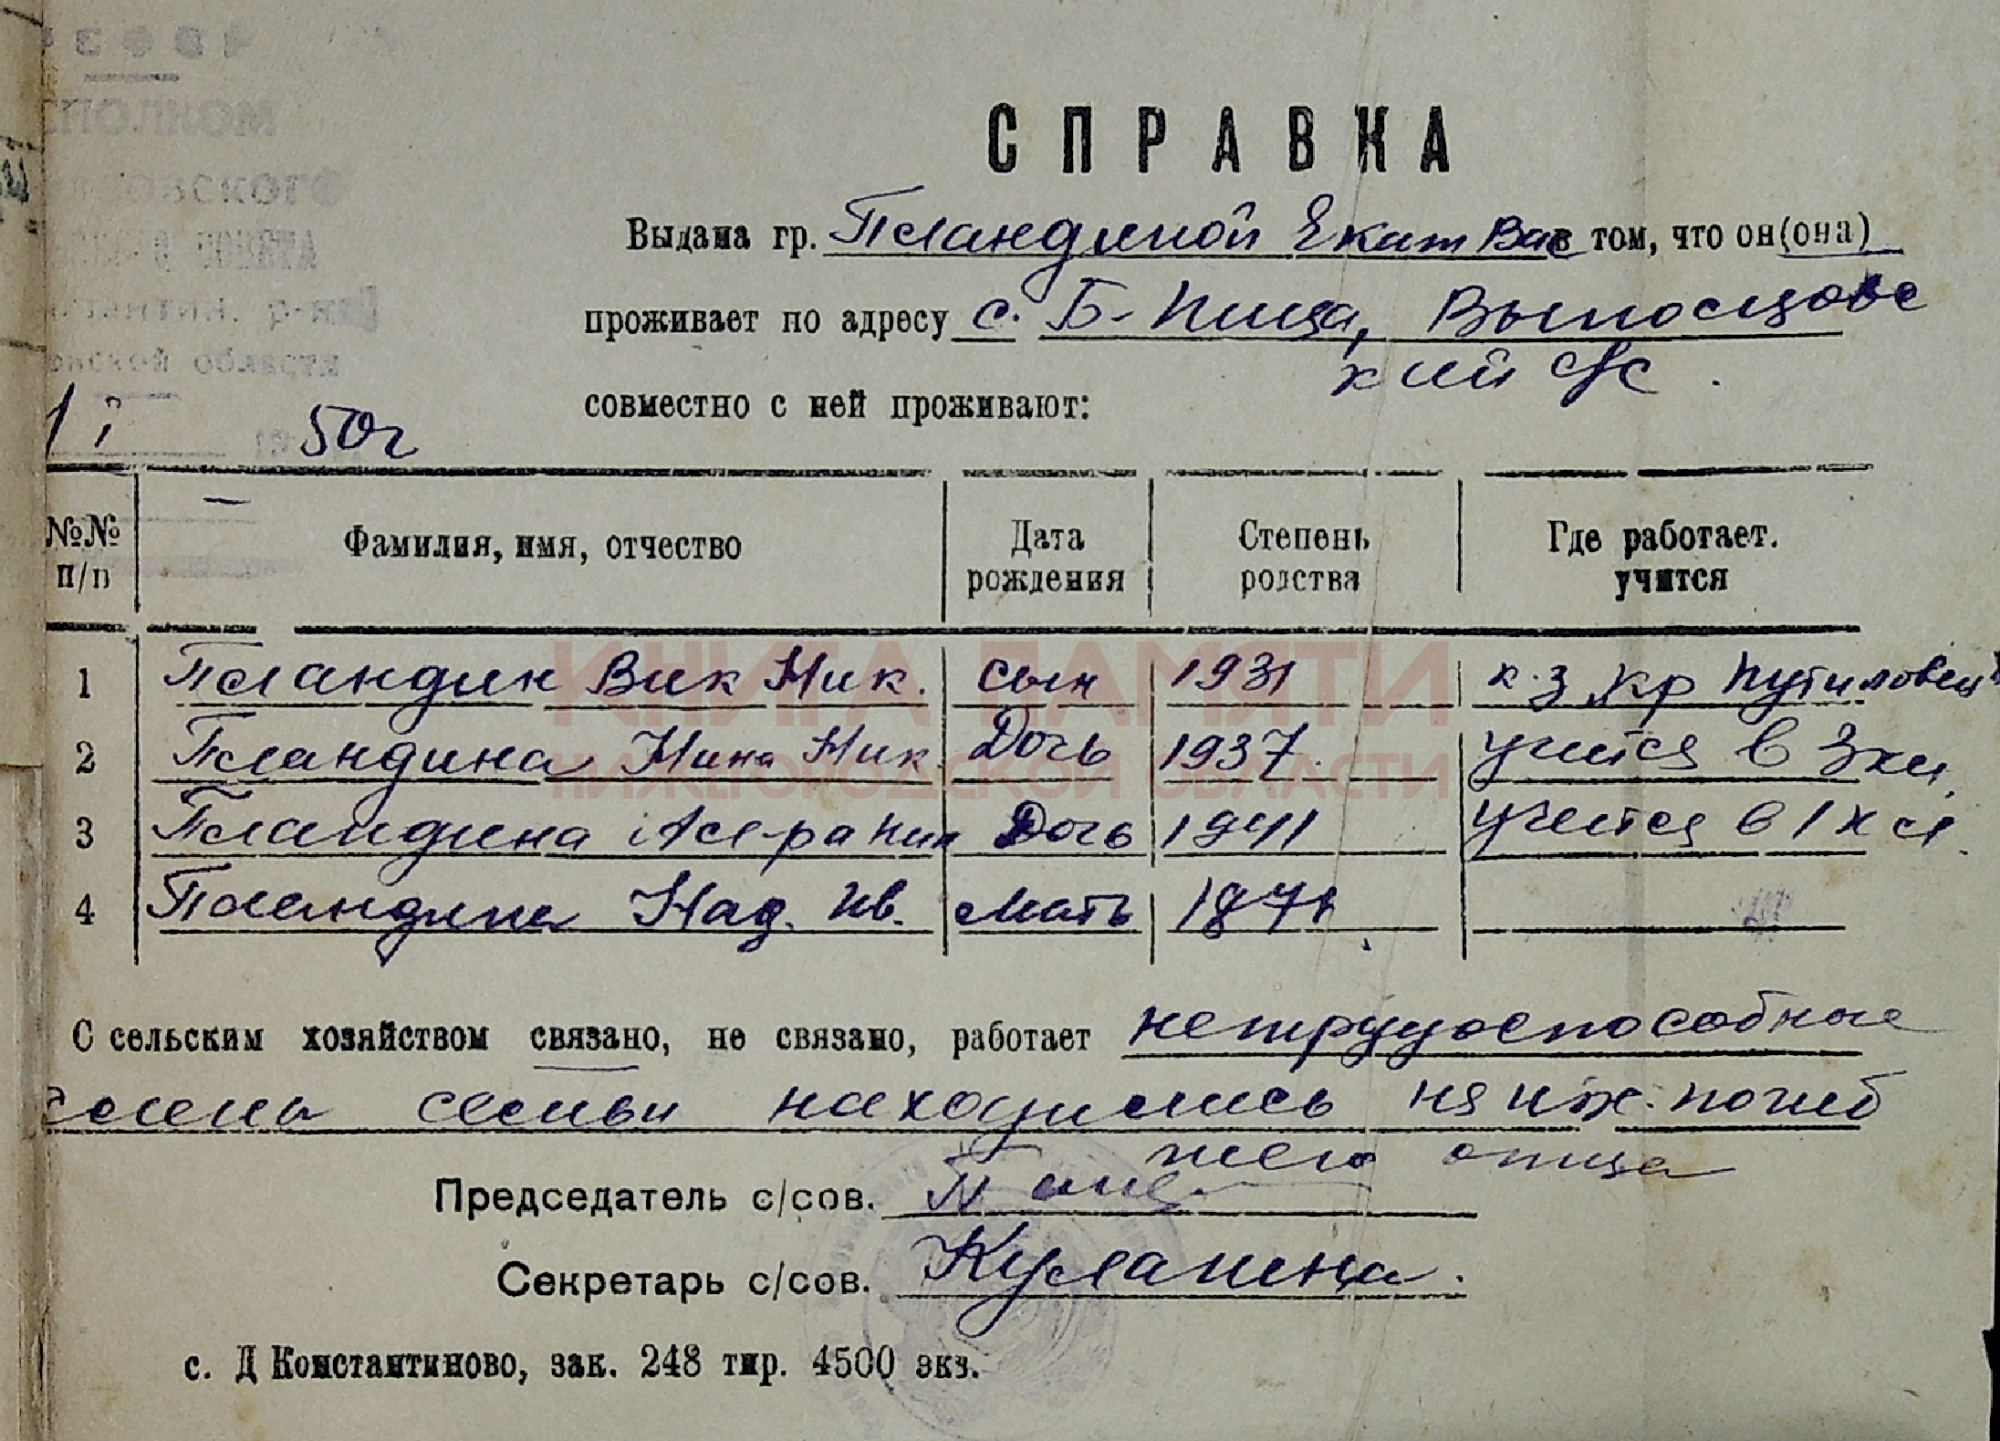 РСФСР
ИСПОЛКОМ
ского
совета
Константин. р-на
области
1 50г
СПРАВКА
Выдана гр. Пландиной Екат Вас в том, что он(она)
проживает по адресу с. Б-Пица, Выпосцовс
кий с/с.
совместно с ней проживают:
№№ п/п Фамилия, имя, отчество Дата рождения Степень родства Где работает. учится
1 Пландин Вик Ник. сын 1931 к-з Кр Путиловец
2 Пландина Нина Ник Дочь 1937. учится в 3кл.
3 Пландина Ник Дочь 1941 учится в 1 кл.
4 Пландина Над. Ив. мать 1871
С сельским хозяйством связано, не связано, работает нетрудоспособные
члены семьи находились на иж. погиб
шего отца
Председатель с/сов.
Секретарь с/сов. Кулагина.
с. Д Константиново, зак. 248 тир. 4500 экз.
КНИГА ПАМЯТИ
НИЖЕГОРОДСКОЙ ОБЛАСТИ